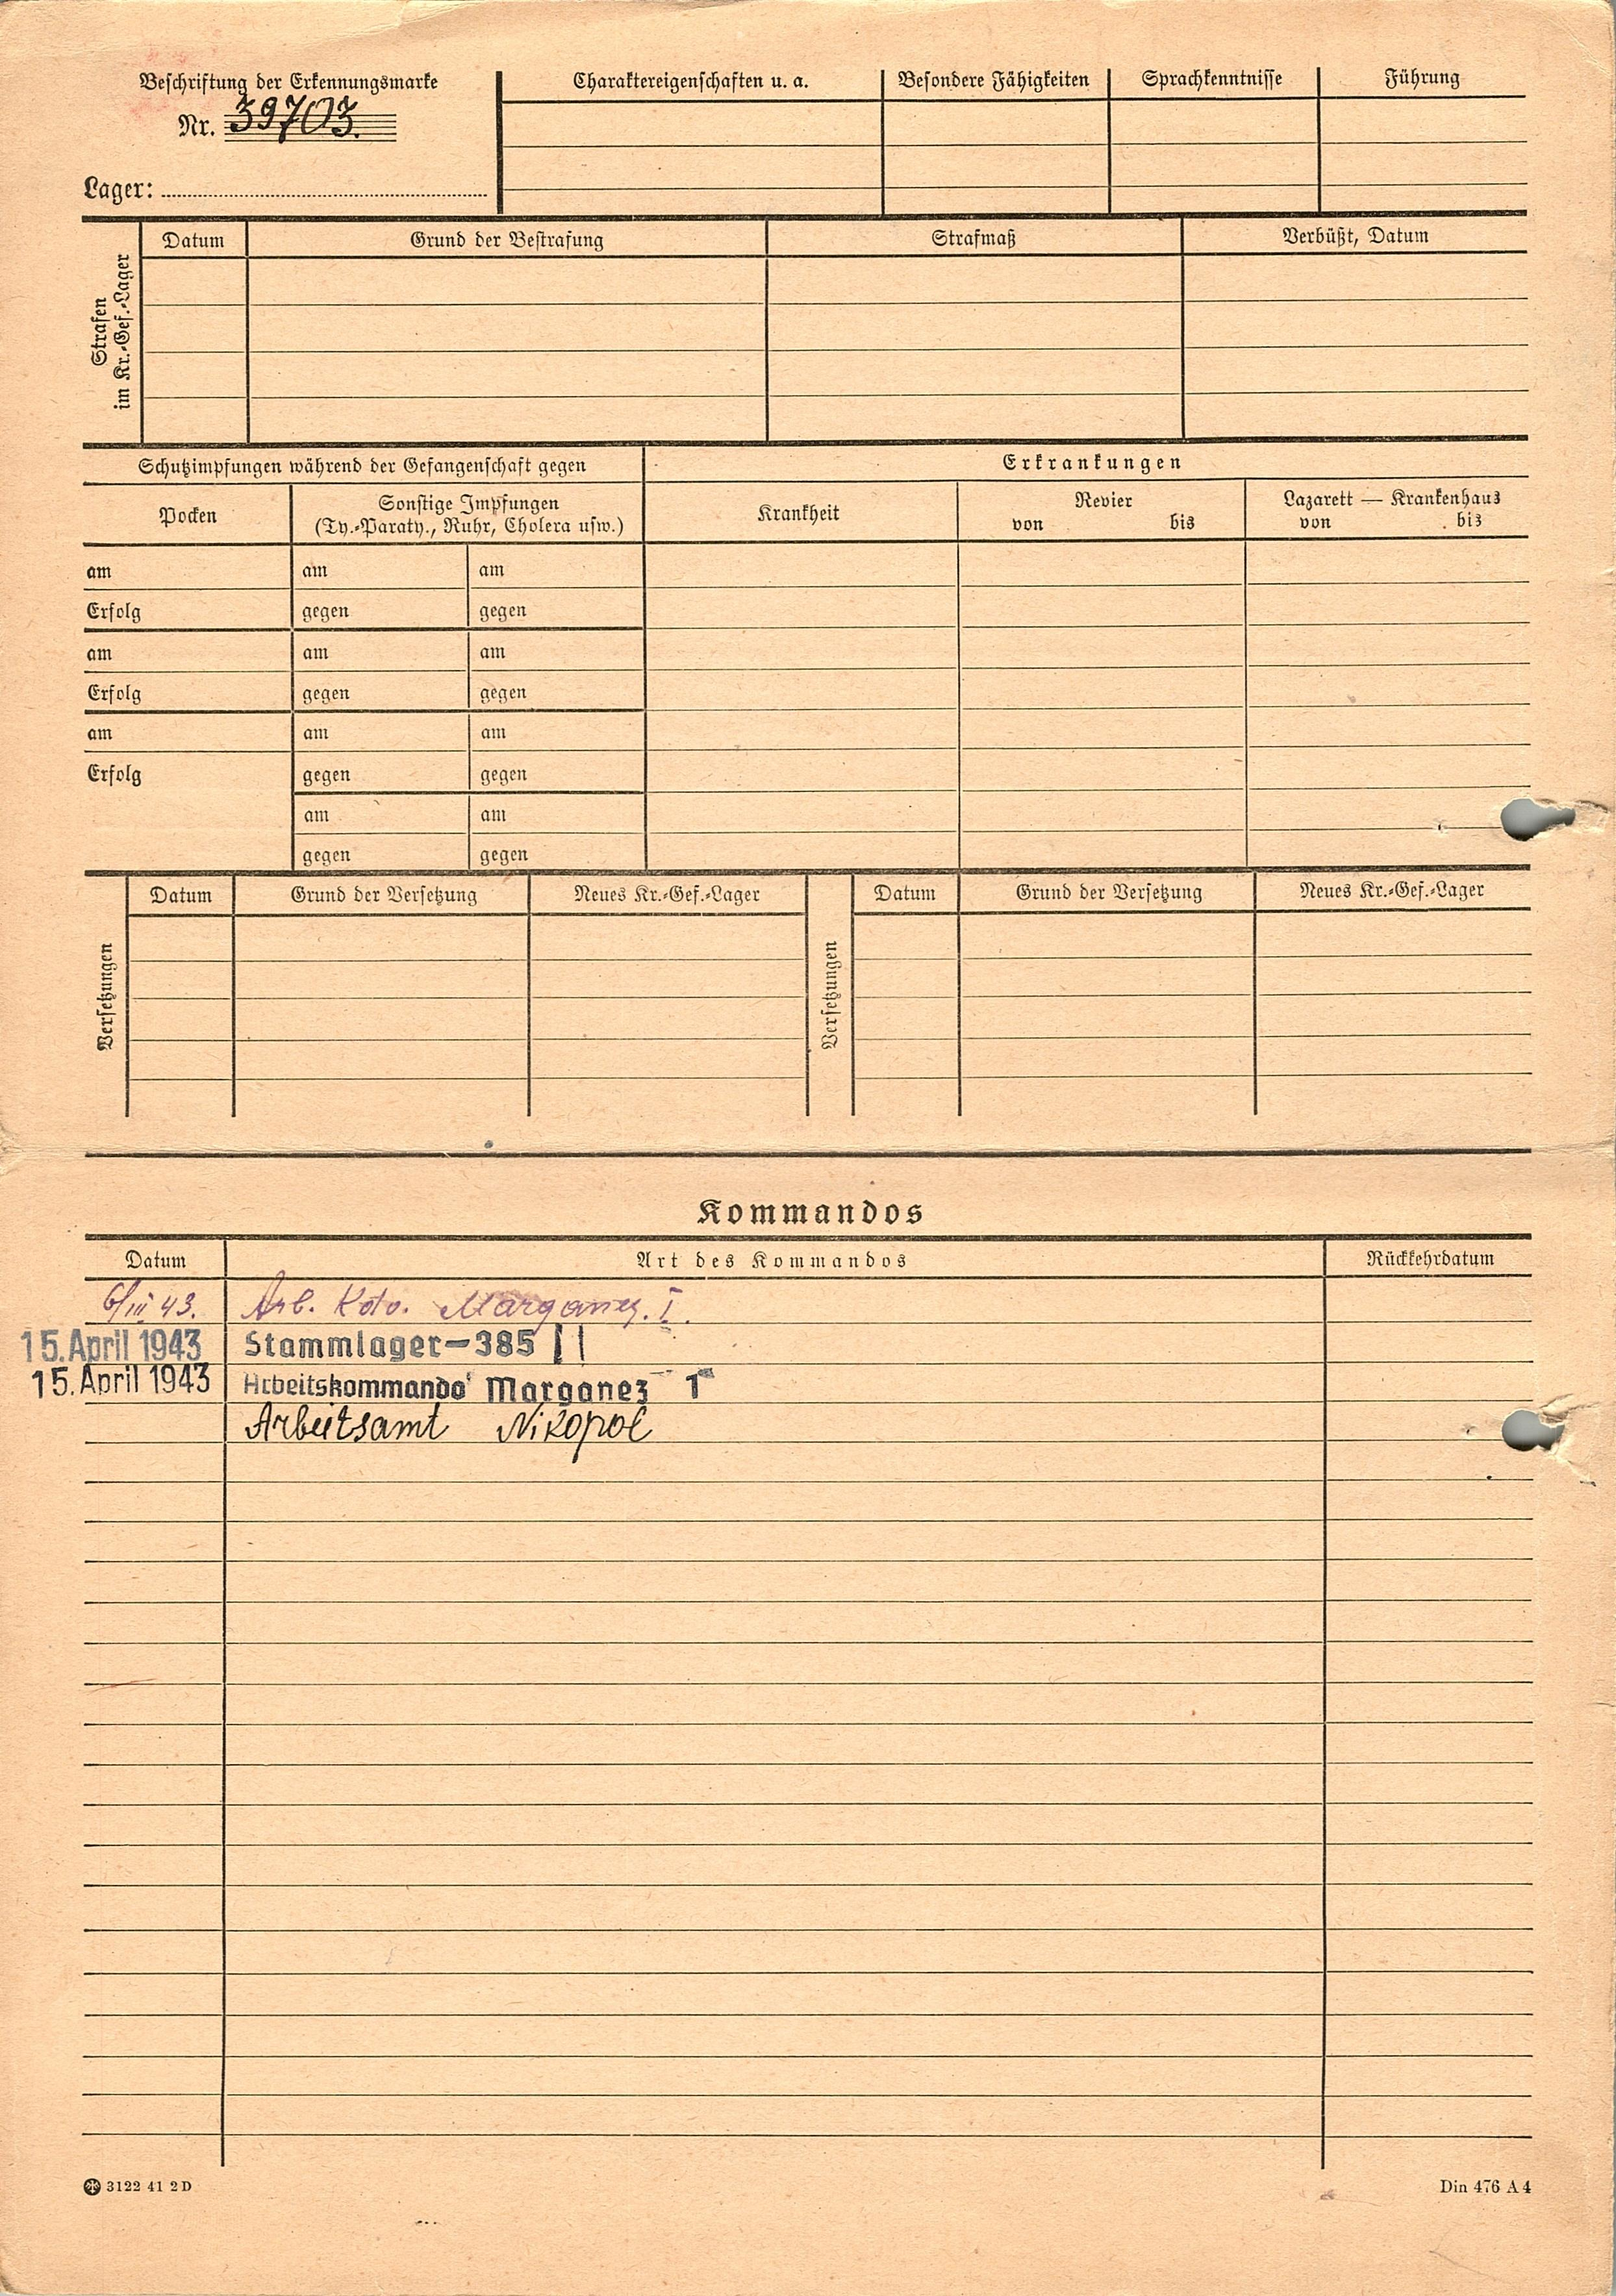 Beschriftung der Erkennungsmarke
Nr. 39703.
Lager:
Charaktereigenschaften u. a.
Besondere Fähigkeiten
Sprachkenntnisse
Führung
Strafen
im Kr.-Gef.-Lager
Datum
Grund der Bestrafung
Strafmaß
Verbüßt, Datum
Schutzimpfungen während der Gefangenschaft gegen
Erkrankungen
Pocken
Sonstige Impfungen
(Ty.-Paraty., Ruhr, Cholera usw.)
Krankheit
Revier
von bis
Lazarett — Krankenhaus
von bis
am am am
Erfolg gegen gegen
am am am
Erfolg gegen gegen
am am am
Erfolg gegen gegen
am am
gegen gegen
Versetzungen
Datum
Grund der Versetzung
Neues Kr.-Gef.-Lager
Versetzungen
Datum
Grund der Versetzung
Neues Kr.-Gef.-Lager
Kommandos
Datum Art des Kommandos Rückkehrdatum
6/III 43. Arb. Kdo. Marganez. I.
15. April 1943 Stammlager-385
15. April 1943 Arbeitskommando Marganez 1
Arbeitsamt Nikopol
3122 41 2 D
Din 476 A 4